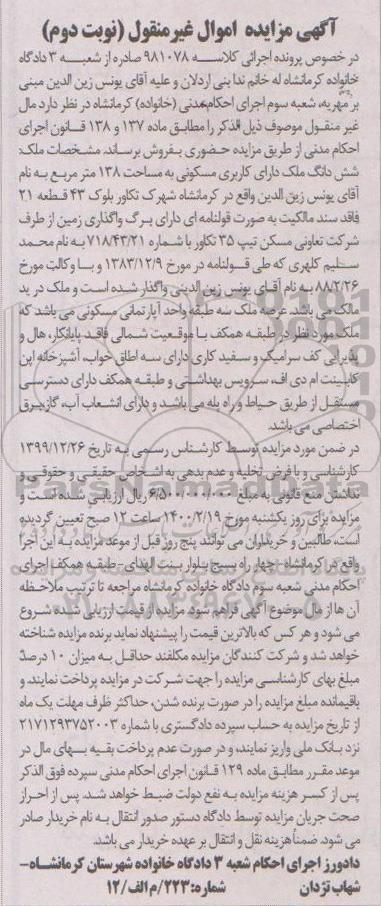 آگهی مزایده اموال غیرمنقول (نوبت دوم)
در خصوص پرونده اجرائی کلاسه ۹۸۱۰۷۸ صادره از شعبه ۳ دادگاه
خانواده کرمانشاه له خانم ندا بنی اردلان و علیه آقای یونس زین الدین مبنی
بر مهریه، شعبه سوم اجرای احکام مدنی (خانواده) کرمانشاه در نظر دارد مال
غیر منقول موصوف ذیل الذکر را مطابق ماده ۱۳۷ و ۱۳۸ قانون اجرای
احکام مدنی از طریق مزایده حضوری بفروش برساند. مشخصات ملک:
شش دانگ ملک دارای کاربری مسکونی به مساحت ۱۳۸ متر مربع به نام
آقای یونس زین الدین واقع در کرمانشاه شهرک تکاور بلوک ۴۳ قطعه ۲۱
فاقد سند مالکیت به صورت قولنامه ای دارای برگ واگذاری زمین از طرف
شرکت تعاونی مسکن تیپ ۳۵ تکاور با شماره ۷۱۸/۴۳/۲۱ به نام محمد
سلیم کلهری که طی قولنامه در مورخ ۱۳۸۳/۱۲/۹ و با وکالت مورخ
۸۸/۲/۲۶ به نام آقای یونس زین الدینی واگذار شده است و ملک در ید
مالک می باشد. عرصه ملک سه طبقه واحد آپارتمانی مسکونی می باشد که
ملک مورد نظر در طبقه همکف با موقعیت شمالی فاقد پایانکار، هال و
پذیرایی کف سرامیک و سفید کاری دارای سه اطاق خواب، آشپزخانه اپن
کابینت ام دی اف، سرویس بهداشتی و طبقه همکف دارای دسترسی
مستقل از طریق حیاط و راه پله می باشد و دارای انشعاب آب، گاز، برق
اختصاصی می باشد.
در ضمن مورد مزایده توسط کارشناس رسمی به تاریخ ۱۳۹۹/۱۲/۲۶
کارشناسی و با فرض تخلیه و عدم بدهی به اشخاص حقیقی و حقوقی و
نداشتن منع قانونی به مبلغ ۶/۵۰۰/۰۰۰/۰۰۰ ریال ارزیابی شده است و
مزایده برای روز یکشنبه مورخ ۱۴۰۰/۲/۱۹ ساعت ۱۲ صبح تعیین گردیده
است، طالبین و خریداران می توانند پنج روز قبل از موعد مزایده به این اجرا
واقع در کرمانشاه- چهار راه بسیج بلوار بنت الهدی- طبقه همکف اجرای
احکام مدنی شعبه سوم دادگاه خانواده کرمانشاه مراجعه تا ترتیب ملاحظه
آن ها از مال موضوع آگهی فراهم شود. مزایده از قیمت ارزیابی شده شروع
می شود و هر کس که بالاترین قیمت را پیشنهاد نماید برنده مزایده شناخته
خواهد شد و شرکت کنندگان مزایده مکلفند حداقل به میزان ۱۰ درصد
مبلغ بهای کارشناسی مزایده را جهت شرکت در مزایده پرداخت نمایند و
باقیمانده مبلغ مزایده را در صورت برنده شدن، حداکثر ظرف مهلت یک ماه
از تاریخ مزایده به حساب سپرده دادگستری با شماره ۲۱۷۱۲۹۳۷۵۲۰۰۳
نزد بانک ملی واریز نمایند، و در صورت عدم پرداخت بقیه بهای مال در
موعد مقرر مطابق ماده ۱۲۹ قانون اجرای احکام مدنی سپرده فوق الذکر
پس از کسر هزینه مزایده به نفع دولت ضبط خواهد شد. پس از احراز
صحت جریان مزایده توسط دادگاه دستور صدور انتقال به نام خریدار صادر
می شود. ضمناً هزینه نقل و انتقال بر عهده خریدار می باشد.
دادورز اجرای احکام شعبه ۳ دادگاه خانواده شهرستان کرمانشاه-
شهاب نژدان شماره: ۲۲۳/م الف/۱۲